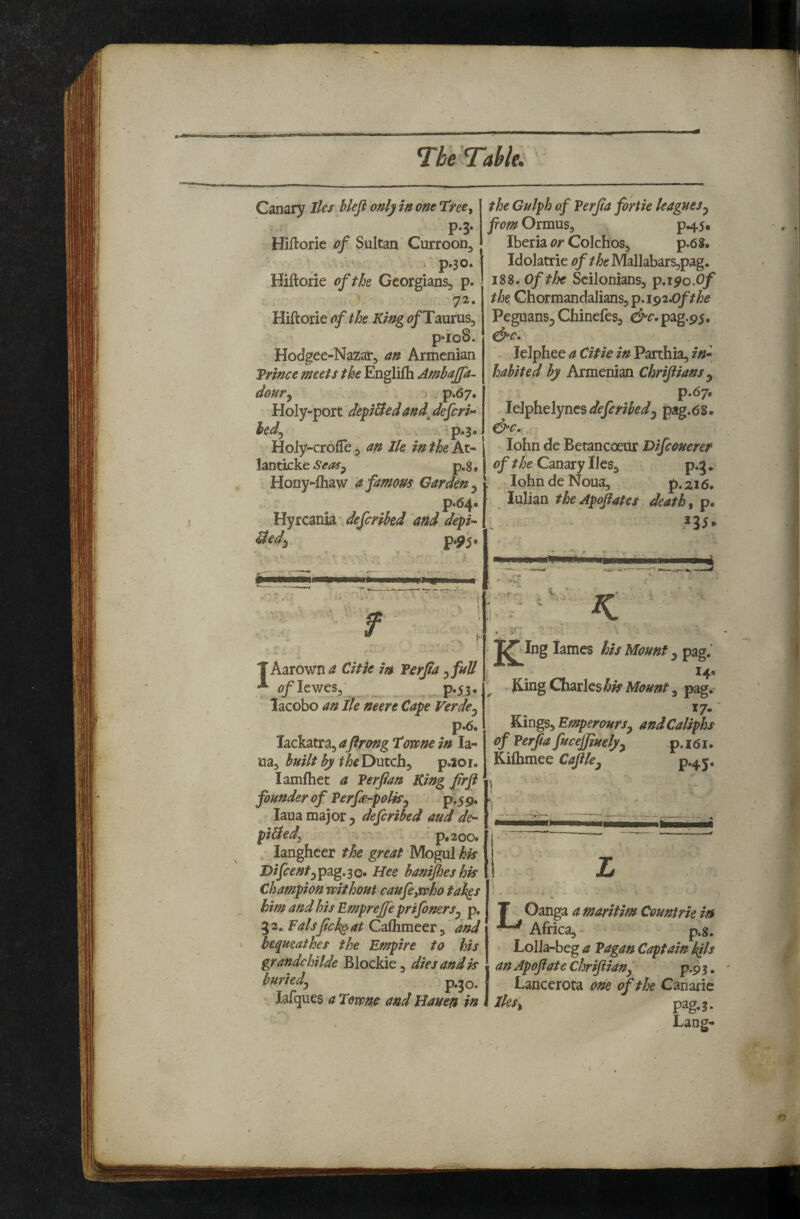 The Table.
Canary Iles blest only in one Tree,
p.3.
Historie of Sultan Curroon,
p.30.
Historie of the Georgians, p.
72.
Historie of the King of Taurus,
p.108.
Hodgee-Nazar, an Armenian
Prince meets the English Ambassa-
dour, p.67.
Holy-port depicted and descri-
bed, p.3.
Holy-crosse, an Ile in the At-
lanticke Seas, p.8.
Hony-shaw a famous Garden,
p.64.
Hyrcania described and depi-
cted, p.95.
I
IAarown a Citie in Persia, full
of Iewes, p.53.
Iacobo an Ile neere Cape Verde,
p.6.
Iackatra, a strong Towne in Ia-
ua, built by the Dutch, p.201.
Iamshet a Persian King first
founder of Persæ-polis, p.59.
Iaua major, described aud de-
picted, p.200.
Iangheer the great Mogul his
Discent, pag.30. Hee banishes his
Champion without cause, who takes
him and his Empresse prisoners, p.
32. Fals sicke at Cashmeer, and
bequeathes the Empire to his
grandchilde Blockie, dies and is
buried, p.30.
Iasques a Towne and Hauen in
the Gulph of Persia fortie leagues,
from Ormus, p.45.
Iberia or Colchos, p.68.
Idolatrie of the Mallabars, pag.
188. Of the Seilonians, p.190. Of
the Chormandalians, p.192. Of the
Peguans, Chineses, &c. pag.95.
&c.
Ielphee a Citie in Parthia, in-
habited by Armenian Christians,
p.67.
Ielphelynes described, pag.68.
&c.
Iohn de Betancoeur Discouerer
of the Canary Iles, p.3.
Iohn de Noua, p.216.
Iulian the Apostates death, p.
135.
K
KIng Iames his Mount, pag.
14.
King Charles his Mount, pag.
17.
Kings, Emperours, and Caliphs
of Persia sucessiuely, p.161.
Kishmee Castle, p.45.
L
LOanga a maritim Countrie in
Africa, p.8.
Lolla-beg a Pagan Captain kils
an Apostate Christian, p.93.
Lancerota one of the Canarie
Iles, pag.3.
Lang-